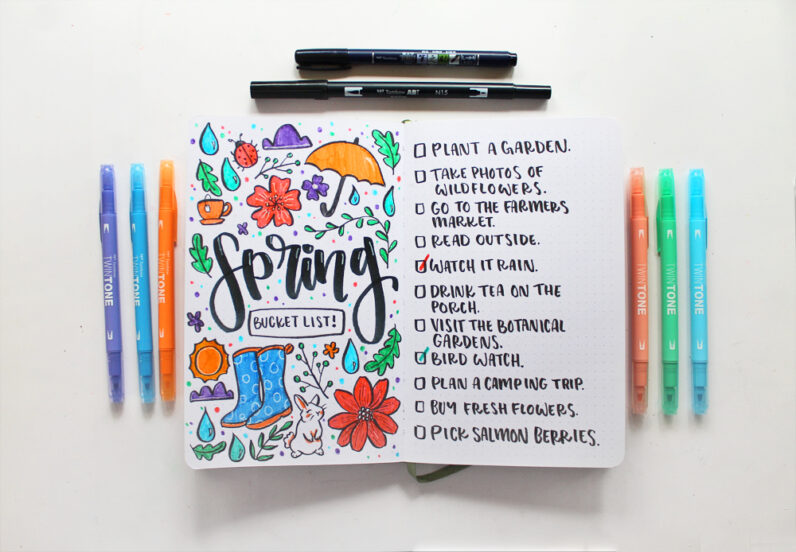 Tombow ABT N15
TWINTONE
TWINTONE
TWINTONE
Spring
BUCKET LIST!
PLANT A GARDEN.
TAKE PHOTOS OF
WILDFLOWERS.
GO TO THE FARMERS
MARKET.
READ OUTSIDE.
WATCH IT RAIN.
DRINK TEA ON THE
PORCH.
VISIT THE BOTANICAL
GARDENS.
BIRD WATCH.
PLAN A CAMPING TRIP.
BUY FRESH FLOWERS.
PICK SALMON BERRIES.
TWINTONE
TWINTONE
TWINTONE